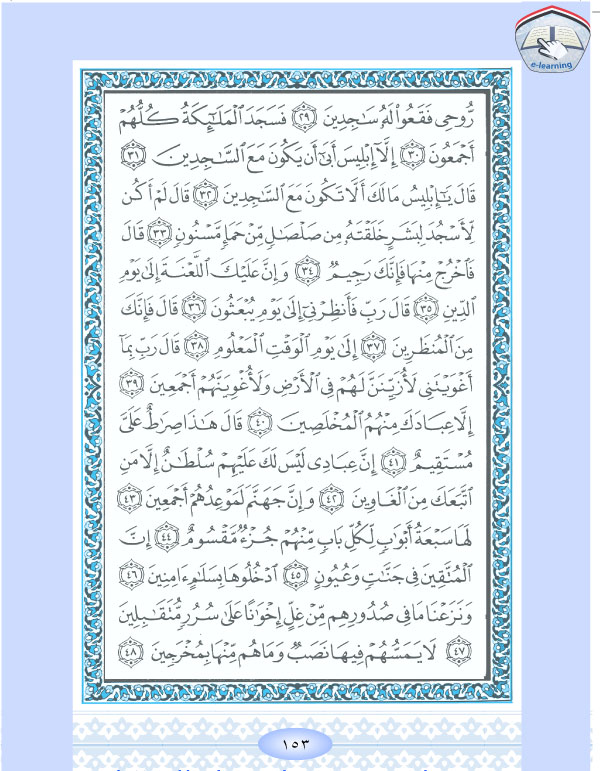 e-learning
رُّوحِى فَقَعُوا۟ لَهُۥ سَـٰجِدِينَ ﴿٢٩﴾ فَسَجَدَ ٱلْمَلَـٰٓئِكَةُ كُلُّهُمْ
أَجْمَعُونَ ﴿٣٠﴾ إِلَّآ إِبْلِيسَ أَبَىٰٓ أَن يَكُونَ مَعَ ٱلسَّـٰجِدِينَ ﴿٣١﴾
قَالَ يَـٰٓإِبْلِيسُ مَا لَكَ أَلَّا تَكُونَ مَعَ ٱلسَّـٰجِدِينَ ﴿٣٢﴾ قَالَ لَمْ أَكُن
لِّأَسْجُدَ لِبَشَرٍ خَلَقْتَهُۥ مِن صَلْصَـٰلٍ مِّنْ حَمَإٍ مَّسْنُونٍ ﴿٣٣﴾ قَالَ
فَٱخْرُجْ مِنْهَا فَإِنَّكَ رَجِيمٌ ﴿٣٤﴾ وَإِنَّ عَلَيْكَ ٱللَّعْنَةَ إِلَىٰ يَوْمِ
ٱلدِّينِ ﴿٣٥﴾ قَالَ رَبِّ فَأَنظِرْنِىٓ إِلَىٰ يَوْمِ يُبْعَثُونَ ﴿٣٦﴾ قَالَ فَإِنَّكَ
مِنَ ٱلْمُنظَرِينَ ﴿٣٧﴾ إِلَىٰ يَوْمِ ٱلْوَقْتِ ٱلْمَعْلُومِ ﴿٣٨﴾ قَالَ رَبِّ بِمَآ
أَغْوَيْتَنِى لَأُزَيِّنَنَّ لَهُمْ فِى ٱلْأَرْضِ وَلَأُغْوِيَنَّهُمْ أَجْمَعِينَ ﴿٣٩﴾
إِلَّا عِبَادَكَ مِنْهُمُ ٱلْمُخْلَصِينَ ﴿٤٠﴾ قَالَ هَـٰذَا صِرَٰطٌ عَلَىَّ
مُسْتَقِيمٌ ﴿٤١﴾ إِنَّ عِبَادِى لَيْسَ لَكَ عَلَيْهِمْ سُلْطَـٰنٌ إِلَّا مَنِ
ٱتَّبَعَكَ مِنَ ٱلْغَاوِينَ ﴿٤٢﴾ وَإِنَّ جَهَنَّمَ لَمَوْعِدُهُمْ أَجْمَعِينَ ﴿٤٣﴾
لَهَا سَبْعَةُ أَبْوَٰبٍ لِّكُلِّ بَابٍ مِّنْهُمْ جُزْءٌ مَّقْسُومٌ ﴿٤٤﴾ إِنَّ
ٱلْمُتَّقِينَ فِى جَنَّـٰتٍ وَعُيُونٍ ﴿٤٥﴾ ٱدْخُلُوهَا بِسَلَـٰمٍ ءَامِنِينَ ﴿٤٦﴾
وَنَزَعْنَا مَا فِى صُدُورِهِم مِّنْ غِلٍّ إِخْوَٰنًا عَلَىٰ سُرُرٍ مُّتَقَـٰبِلِينَ
﴿٤٧﴾ لَا يَمَسُّهُمْ فِيهَا نَصَبٌ وَمَا هُم مِّنْهَا بِمُخْرَجِينَ ﴿٤٨﴾
١٥٣